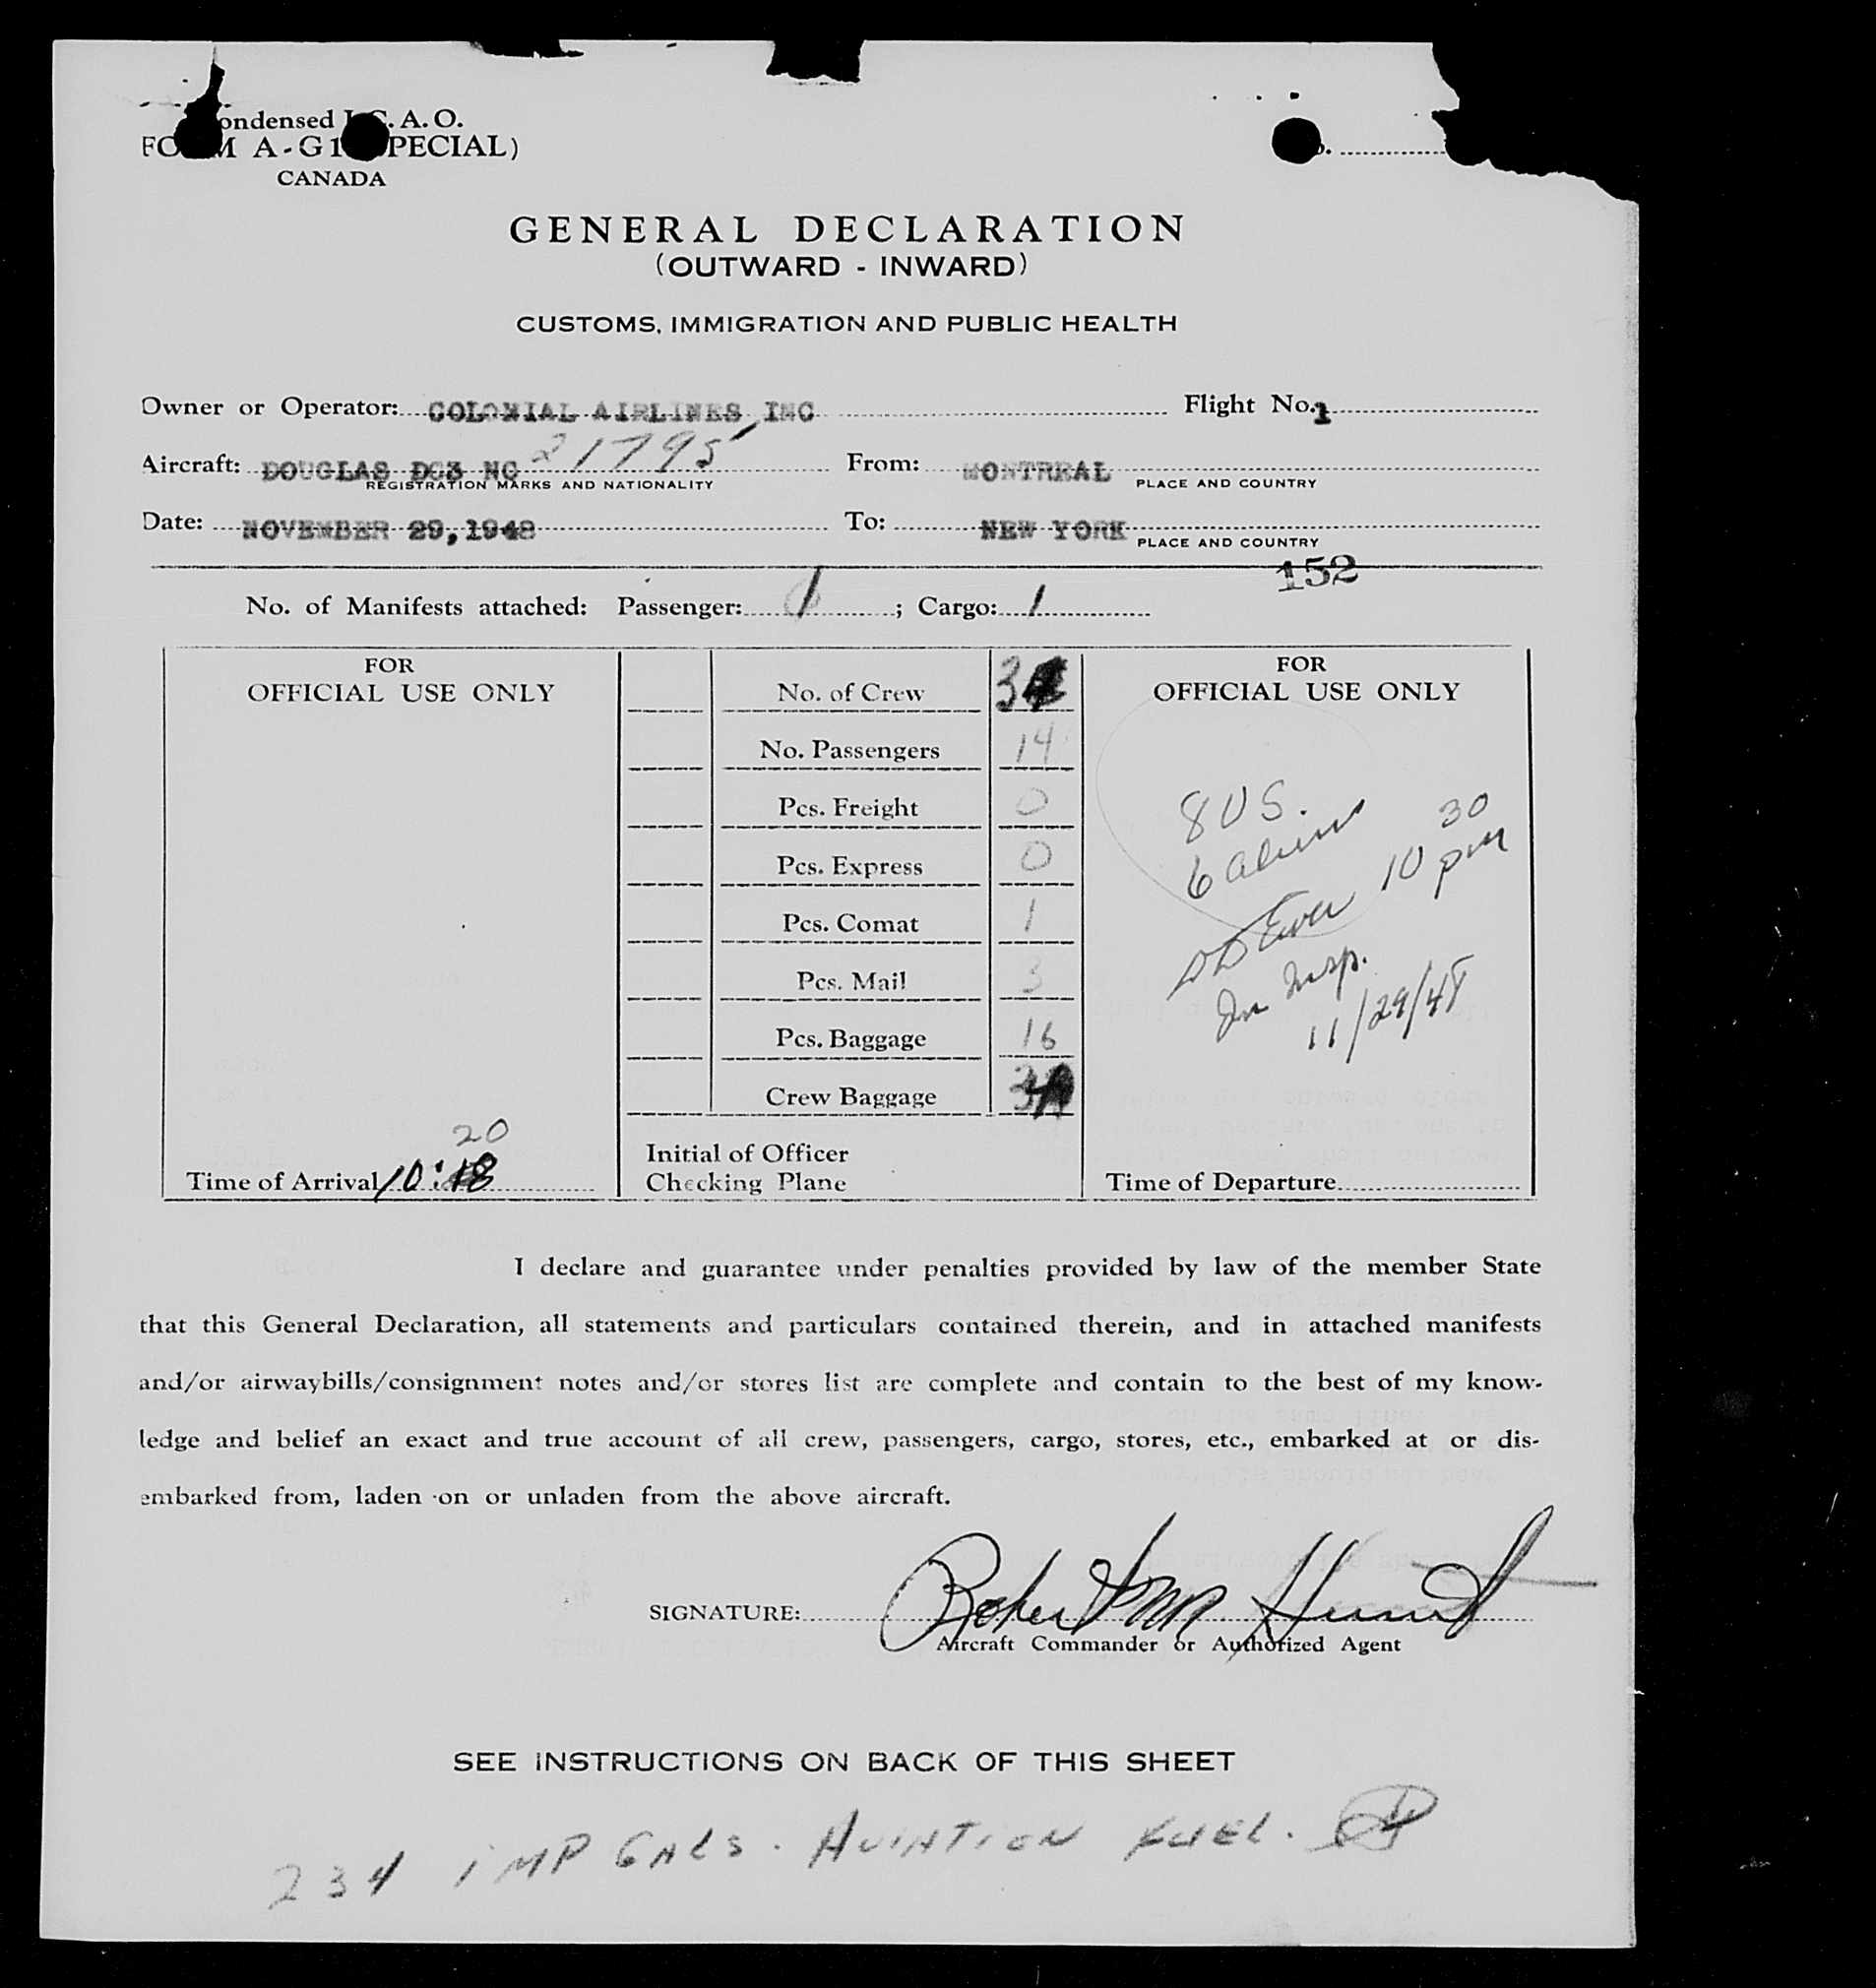 ondensed I.C.A.O.
FORM A-G1 (SPECIAL)
CANADA
GENERAL DECLARATION
(OUTWARD - INWARD)
CUSTOMS, IMMIGRATION AND PUBLIC HEALTH
Owner or Operator: COLONIAL AIRLINES, INC Flight No. 1
Aircraft: DOUGLAS DC3 NC 21795 From: MONTREAL
REGISTRATION MARKS AND NATIONALITY PLACE AND COUNTRY
Date: NOVEMBER 29, 1948 To: NEW YORK
PLACE AND COUNTRY
152
No. of Manifests attached: Passenger: 1 ; Cargo: 1
FOR
OFFICIAL USE ONLY
20
Time of Arrival 10:18
No. of Crew 3
No. Passengers 14
Pcs. Freight 0
Pcs. Express 0
Pcs. Comat 1
Pcs. Mail 3
Pcs. Baggage 16
Crew Baggage 3
Initial of Officer
Checking Plane
FOR
OFFICIAL USE ONLY
8 US.
6 aliens
10 30 pm
Im Insp.
11/29/48
Time of Departure
I declare and guarantee under penalties provided by law of the member State
that this General Declaration, all statements and particulars contained therein, and in attached manifests
and/or airwaybills/consignment notes and/or stores list are complete and contain to the best of my know-
ledge and belief an exact and true account of all crew, passengers, cargo, stores, etc., embarked at or dis-
embarked from, laden on or unladen from the above aircraft.
SIGNATURE: Robert M Hunt
Aircraft Commander or Authorized Agent
SEE INSTRUCTIONS ON BACK OF THIS SHEET
234 IMP GALS. AVIATION FUEL.